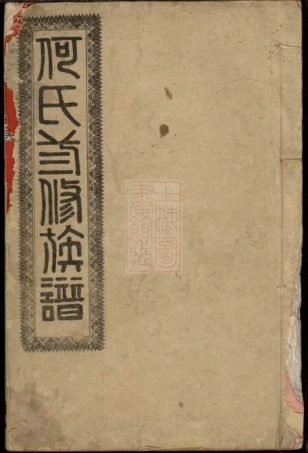 何氏修族譜
上海圖
書館藏